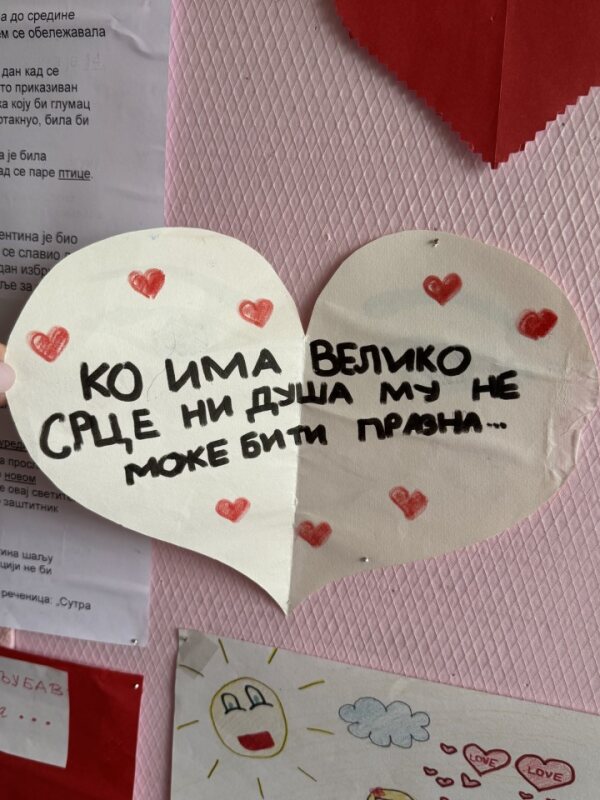 а до средине
ем се обележавала
дан кад се
то приказиван
ка коју би глумац
отакнуо, била би
а је била
ад се паре птице.
ентина је био
се славио
дан избр
ље за
КО ИМА ВЕЛИКО
СРЦЕ НИ ДУША МУ НЕ
МОЖЕ БИТИ ПРАЗНА...
новом
е овај светит
заштитник
ина шаљу
ције не би
реченица: „Сутра
ЉУБАВ
...
LOVE
LOVE